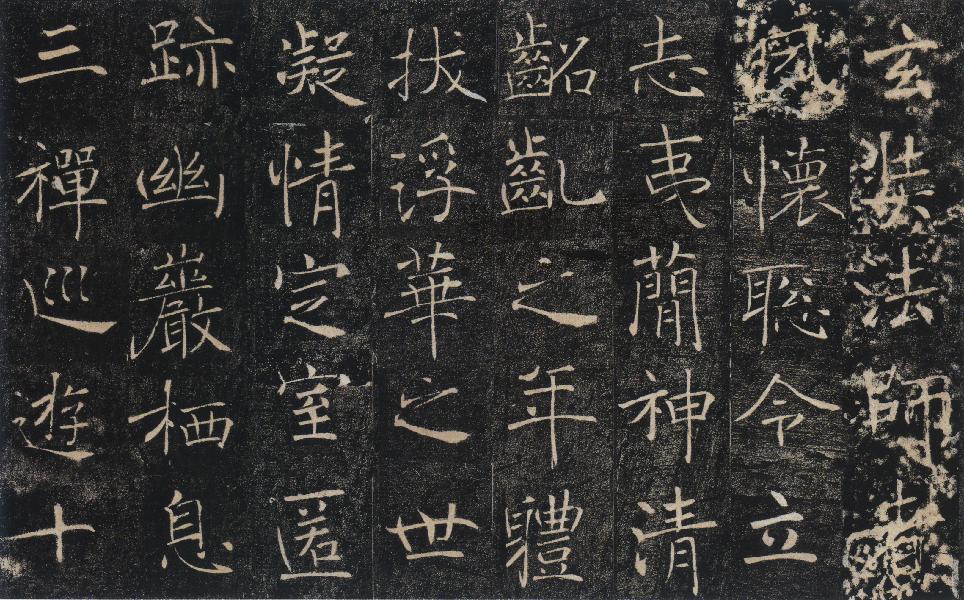 玄奘法師者
夙懷聰令立
志夷簡神清
齠齔之年體
拔浮華之世
凝情定室匿
跡幽巖栖息
三禪巡遊十